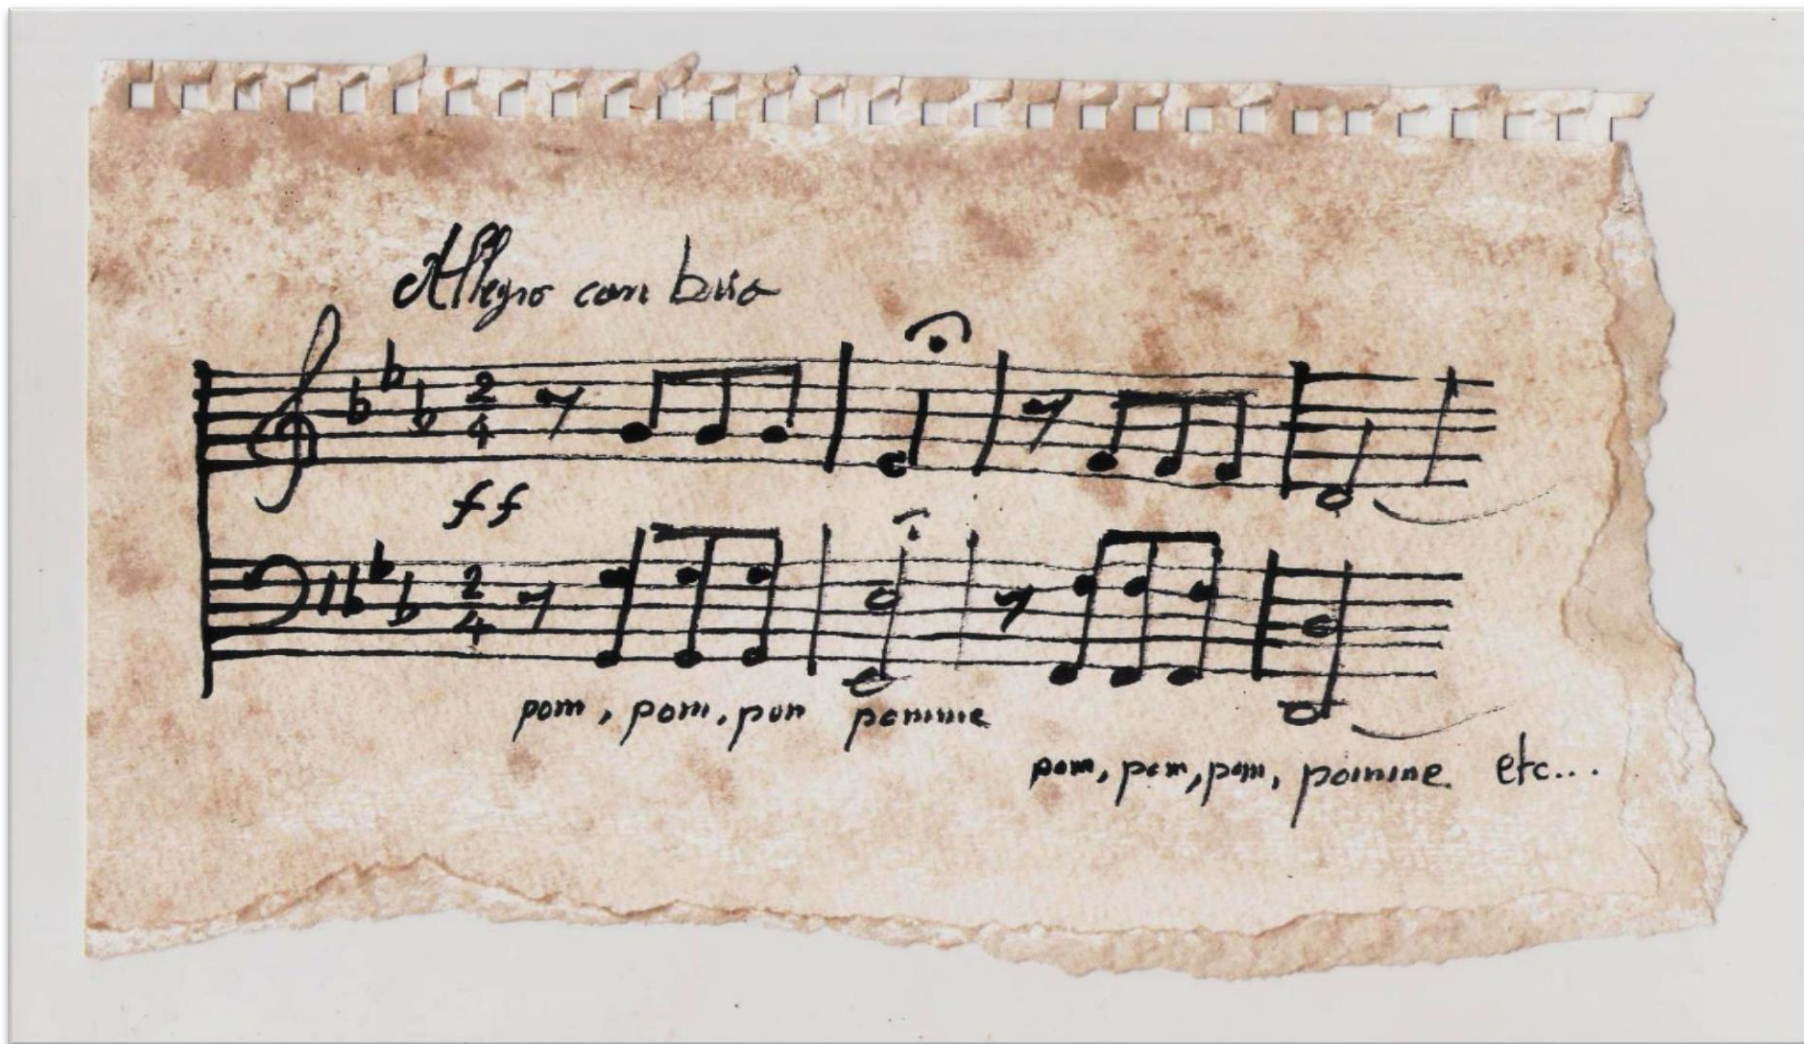 Allegro con brio
2
4
ff
2
4
pom, pom, pom pomme
pom, pom, pom, pomme etc...